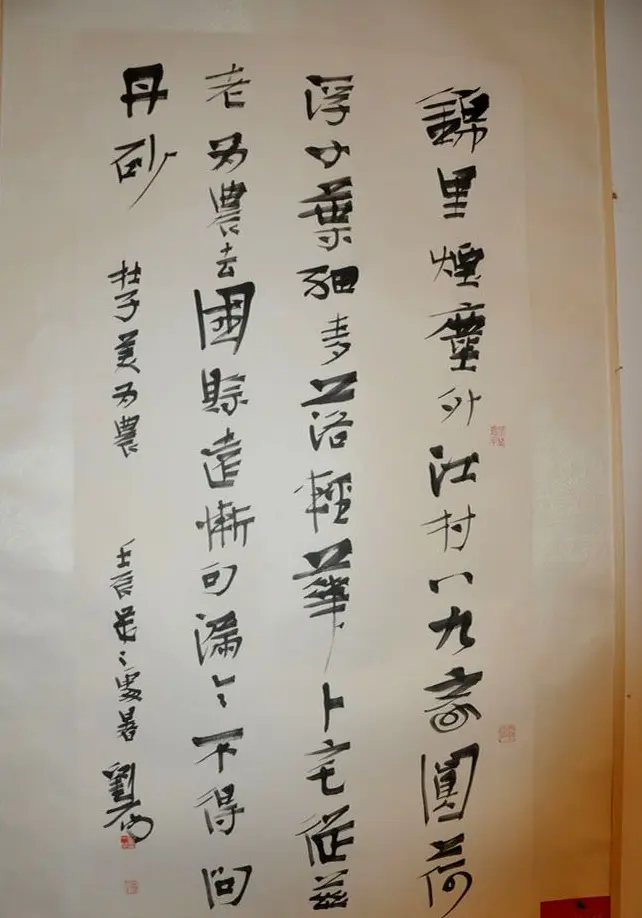 錦里煙塵外江村八九家圓荷
浮小葉細麦落輕華卜宅從茲
老为農去國賒遠慚句漏令不得問
丹砂 杜子美为農 壬辰 劉